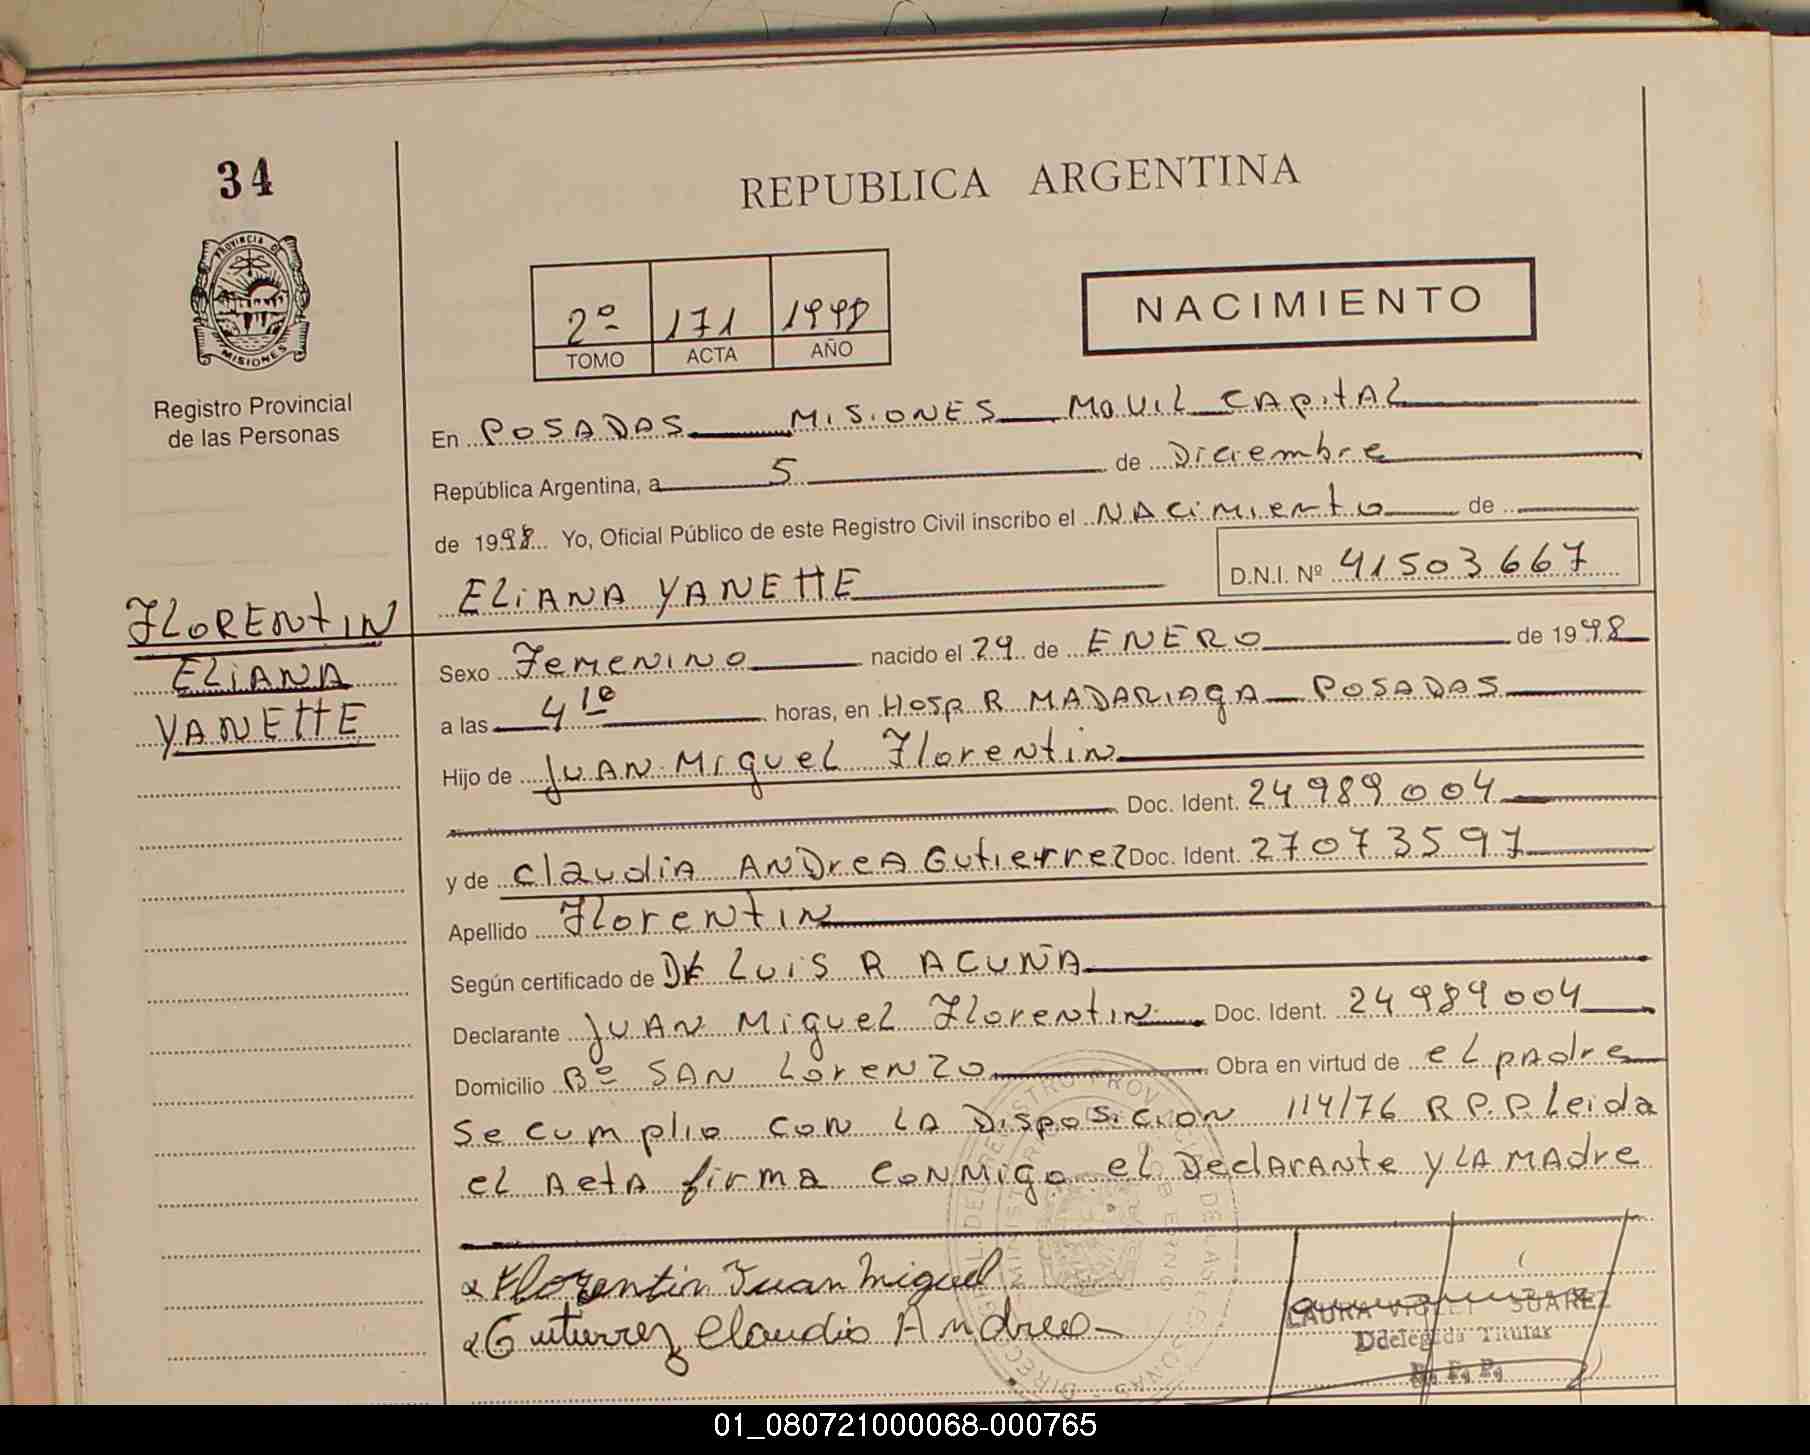 34
REPUBLICA ARGENTINA
PROVINCIA DE
MISIONES
Registro Provincial
de las Personas
2º 171 1998
TOMO ACTA AÑO
NACIMIENTO
En POSADAS MISIONES MOVIL CAPITAL
República Argentina, a 5 de Diciembre
de 1998 Yo, Oficial Público de este Registro Civil inscribo el NACIMIENTO de
ELIANA YANETTE D.N.I. Nº 41503667
FLORENTIN
ELIANA
YANETTE
Sexo Femenino nacido el 29 de ENERO de 1998
a las 4 10 horas, en HOSP R MADARIAGA POSADAS
Hijo de JUAN MIGUEL Florentin
Doc. Ident. 24 989 004
y de Claudia ANDREA Gutierrez Doc. Ident. 27073597
Apellido Florentin
Según certificado de DR LUIS R ACUÑA
Declarante JUAN MIGUEL Florentin Doc. Ident. 24 989 004
Domicilio Bº SAN LorenZo Obra en virtud de el padre
Se cumplio con LA Disposicion 114/76 R P.P Leida
el Acta firma conmigo el Declarante y LA MAdre
Florentin Juan Miguel
Gutierrez Claudia Andrea
LAURA VIOLET SUAREZ
Ddelegada Titular
R. P. P.
01_080721000068-000765